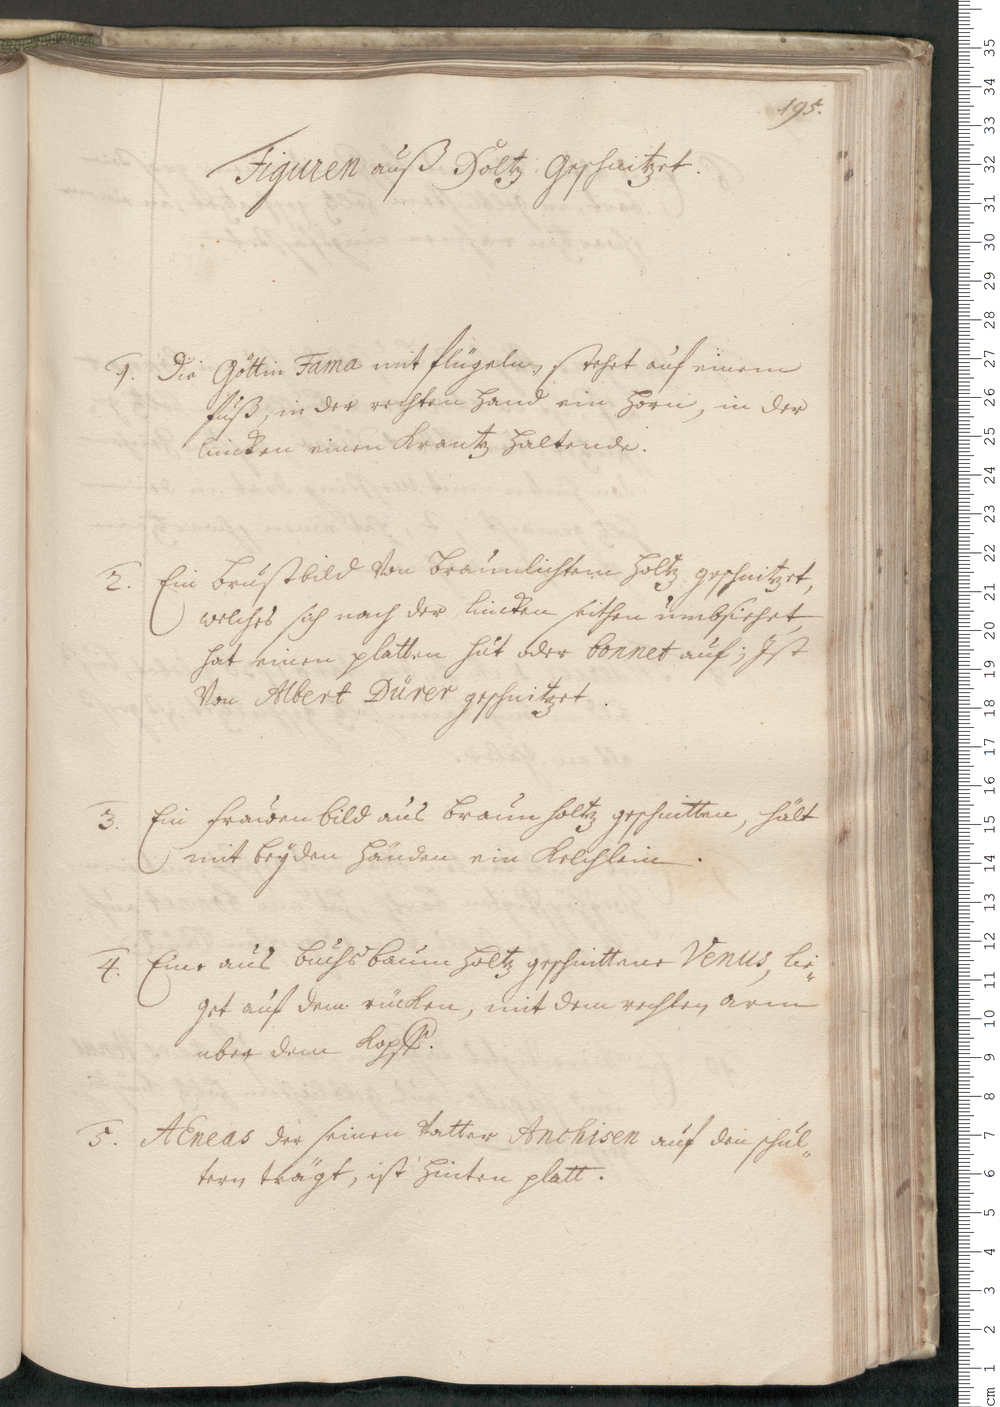 195.
Figuren auß Holtz Geschnitzet.
1. Die Göttin Fama mit flügeln, stehet auf einem
fuß, in der rechten Hand ein Horn, in der
lincken einen Krantz haltende.
2. Ein brustbild von bräunlichtem Holtz geschnitzet,
welches sich nach der lincken seithen umbsiehet,
hat einen platten hut oder bonnet auf; Ist
Von Albert Dürer geschnitzet.
3. Ein frawenbild aus braun holtz geschnitten, hält
mit beyden Händen ein Kelchlein.
4. Eine aus buchsbaum Holtz geschnittene Venus, lie„
get auf dem rücken, mit dem rechten arm
uber dem Kopff.
5. AEneas der seinen Vatter Anchisen auf den schul„
tern trägt, ist hinten platt.
35
34
33
32
31
30
29
28
27
26
25
24
23
22
21
20
19
18
17
16
15
14
13
12
11
10
9
8
7
6
5
4
3
2
1
cm